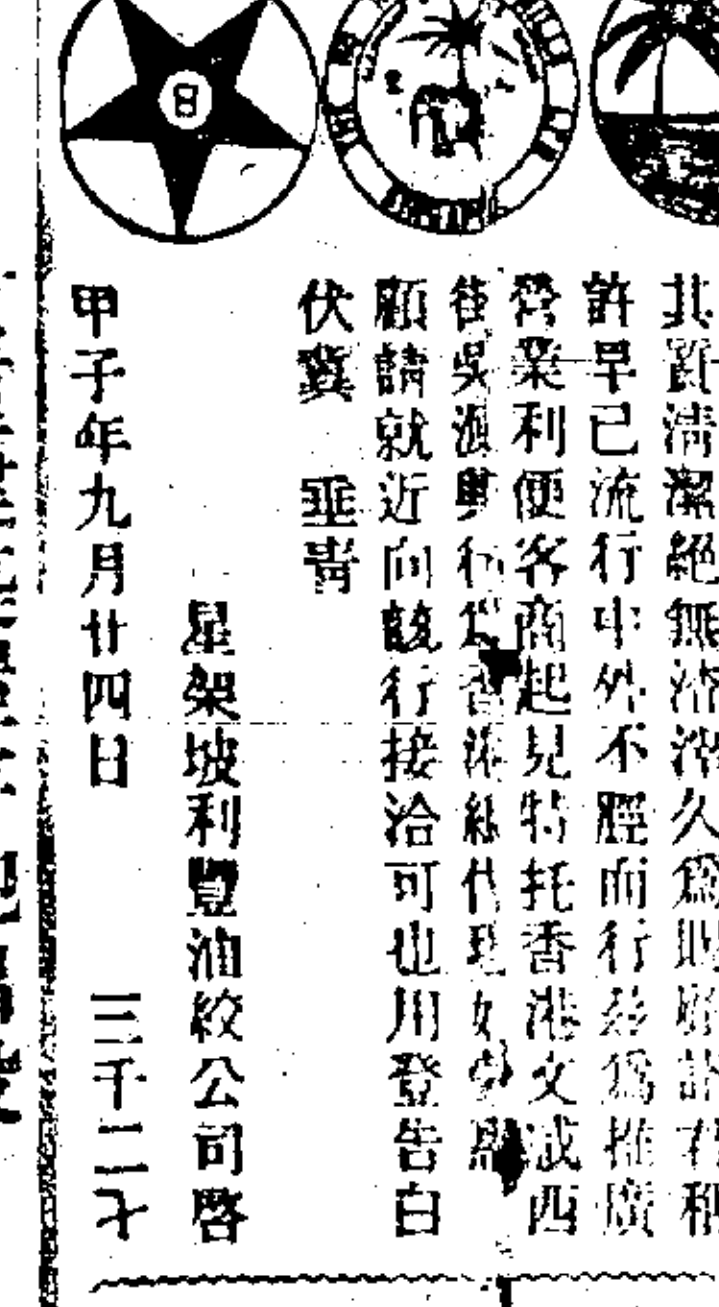 其質清潔絕無渣滓久為賜顧諸君稱
許早已流行中外不脛而行茲為推廣
營業利便客商起見特托香港文咸西
街吳源興和為香港總代理如蒙惠
顧請就近向該行接洽可也用登告白
伏冀 垂青
星架坡利豐油絞公司啓
甲子年九月廿四日 三千二才
8